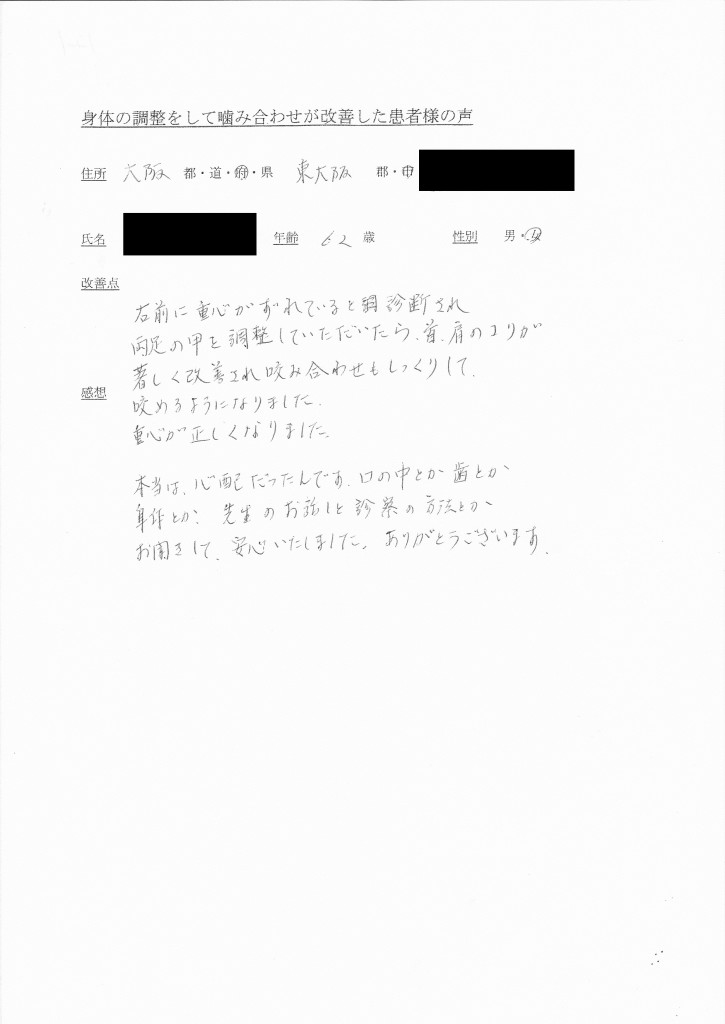 身体の調整をして噛み合わせが改善した患者様の声
住所 大阪 都・道・府・県 東大阪 郡・市
氏名 年齢 62 歳 性別 男・女
改善点
右前に重心がずれていると 診断され
両足の甲を調整していただいたら、首、肩のコリが
著しく改善され咬み合わせもしっくりして、
感想
咬めるようになりました。
重心が正しくなりました。
本当は、心配だったんです。口の中とか歯とか
身体とか、先生のお話しと診察の方法とか
お聞きして、安心いたしました。ありがとうございます。